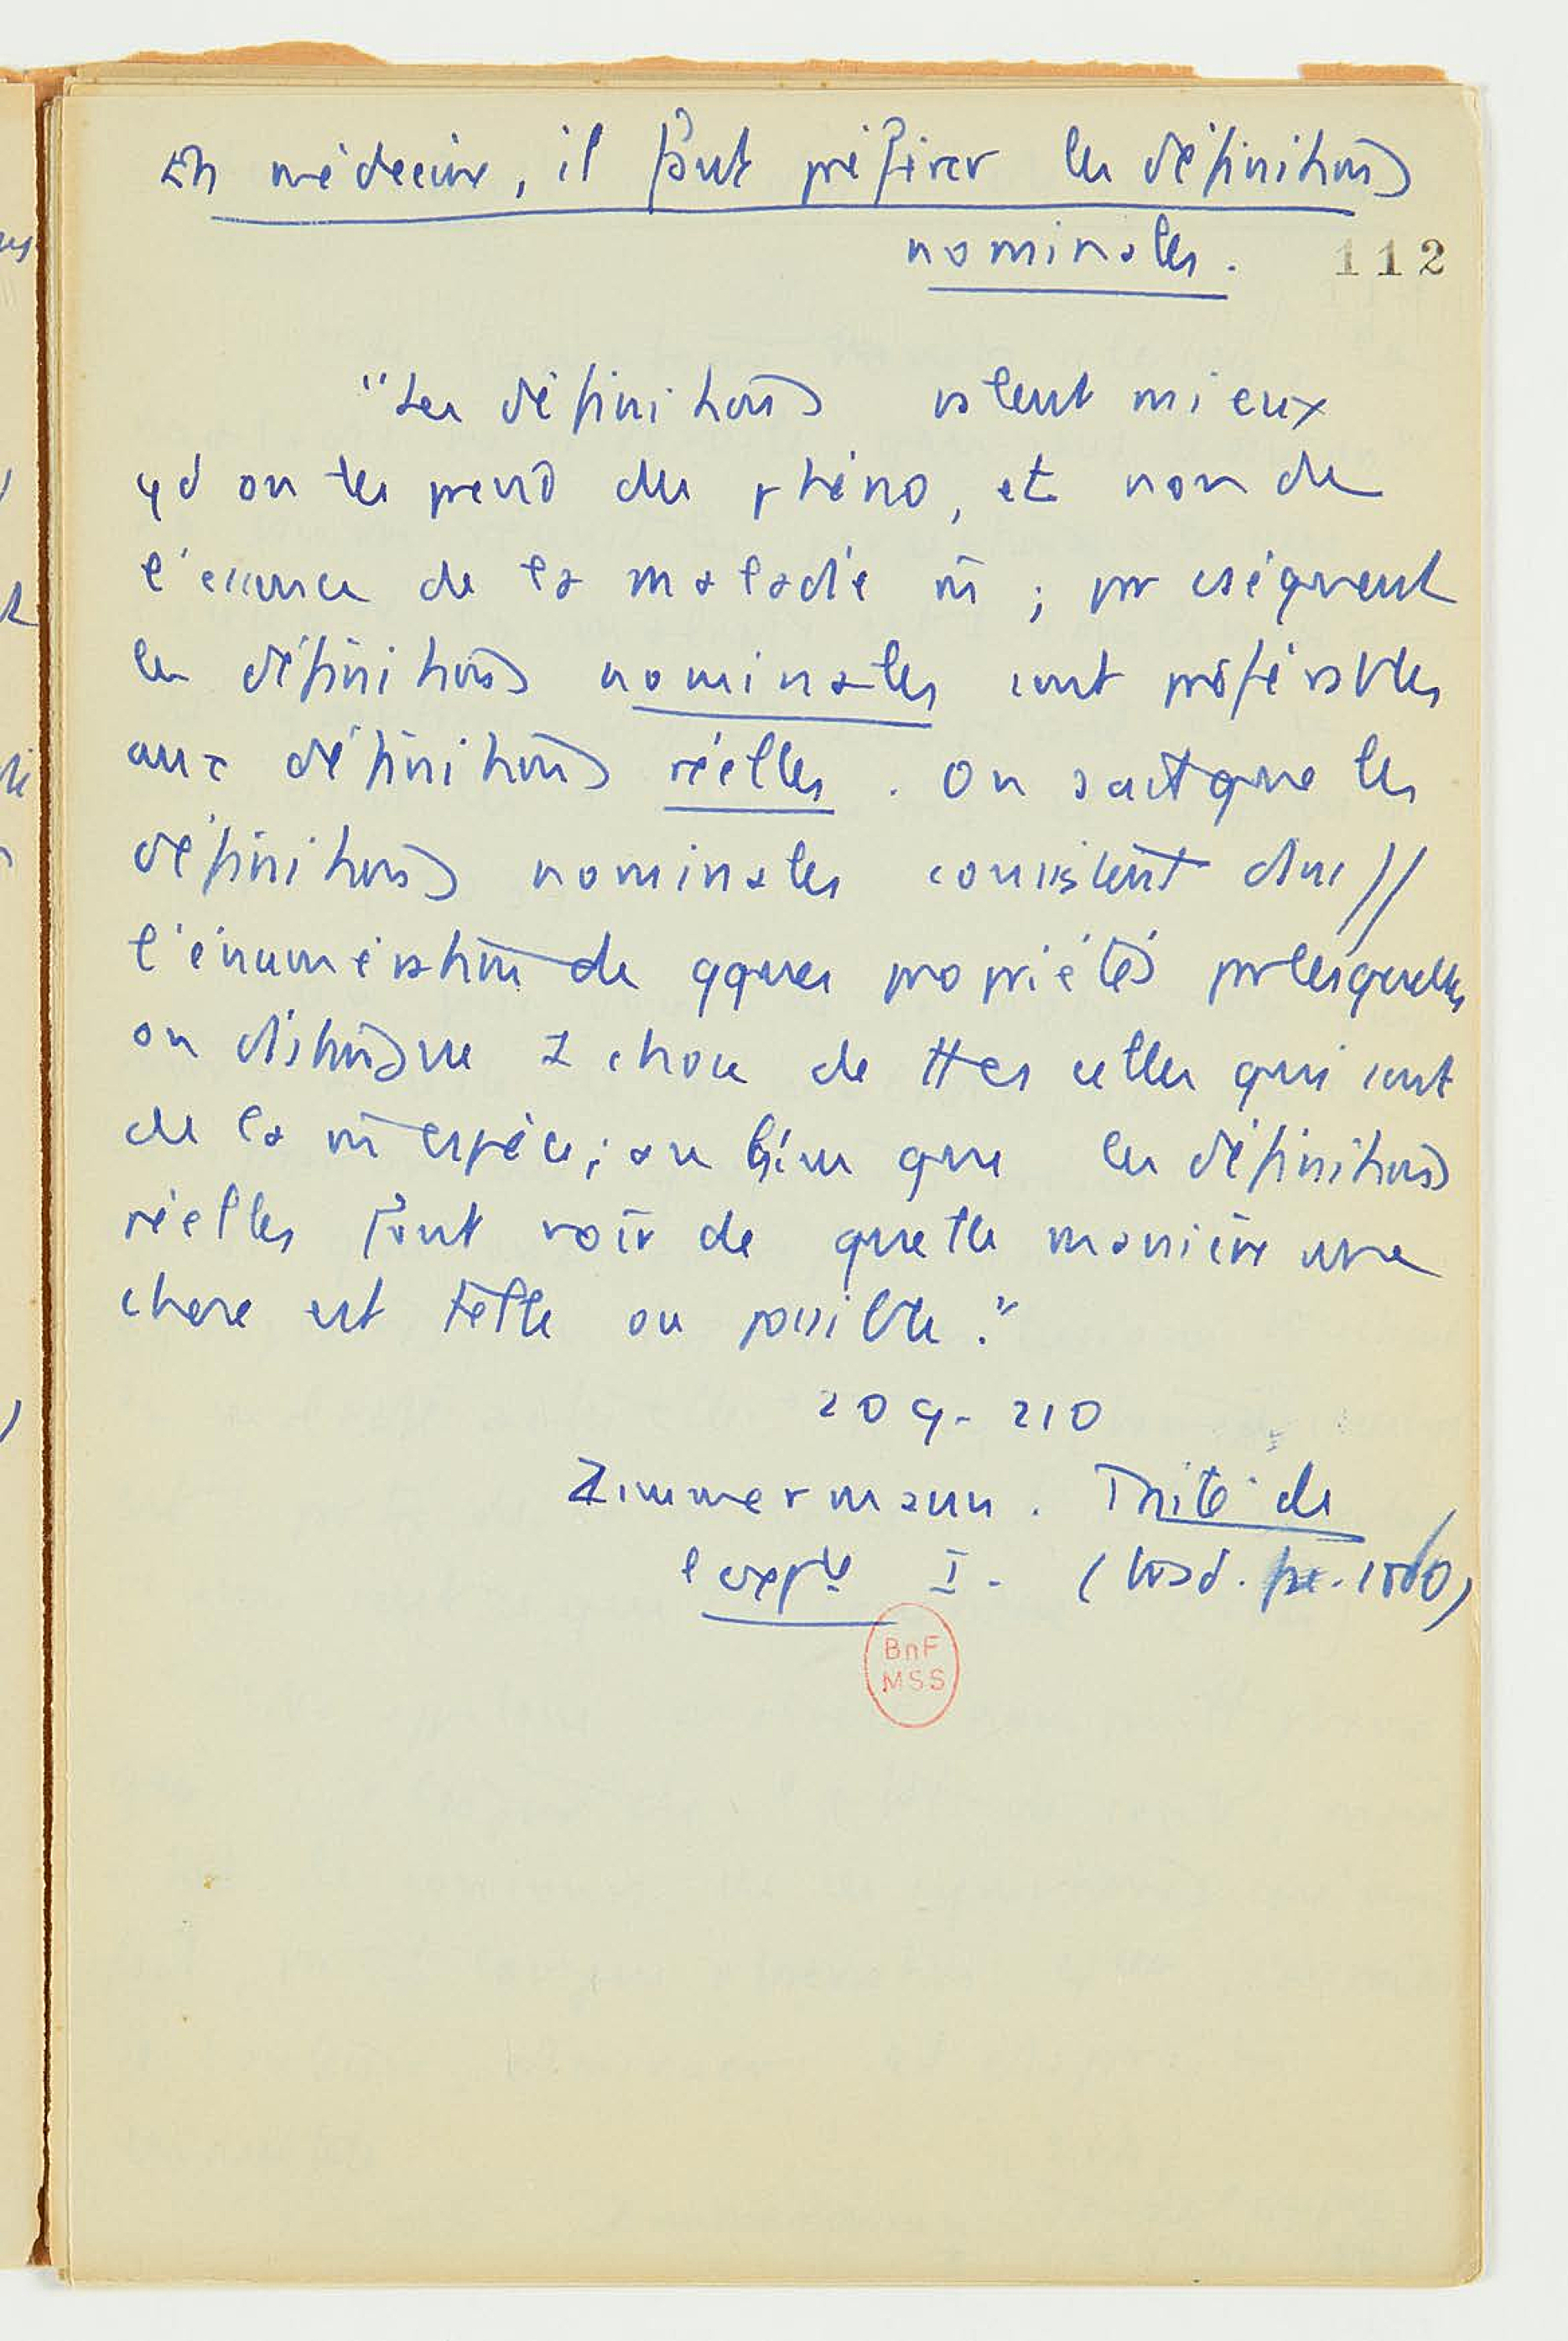 En médecine, il faut préférer les définitions
nominales. 112
"Les définitions valent mieux
qd on les prend des phéno, et non de
l'essence de la maladie m̄ ; pr cséquent
les définitions nominales sont préférables
aux définitions réelles. On sait que les
définitions nominales consistent ds
l'énumération de qques propriétés pr lesquelles
on distingue 1 chose de ttes celles qui sont
de la m̄ espèce ; au lieu que les définitions
réelles font voir de quelle manière une
chose est telle ou possible."
209-210
Zimmermann. Traité de
l'expce I. (trad. fse. )
BnF
MSS